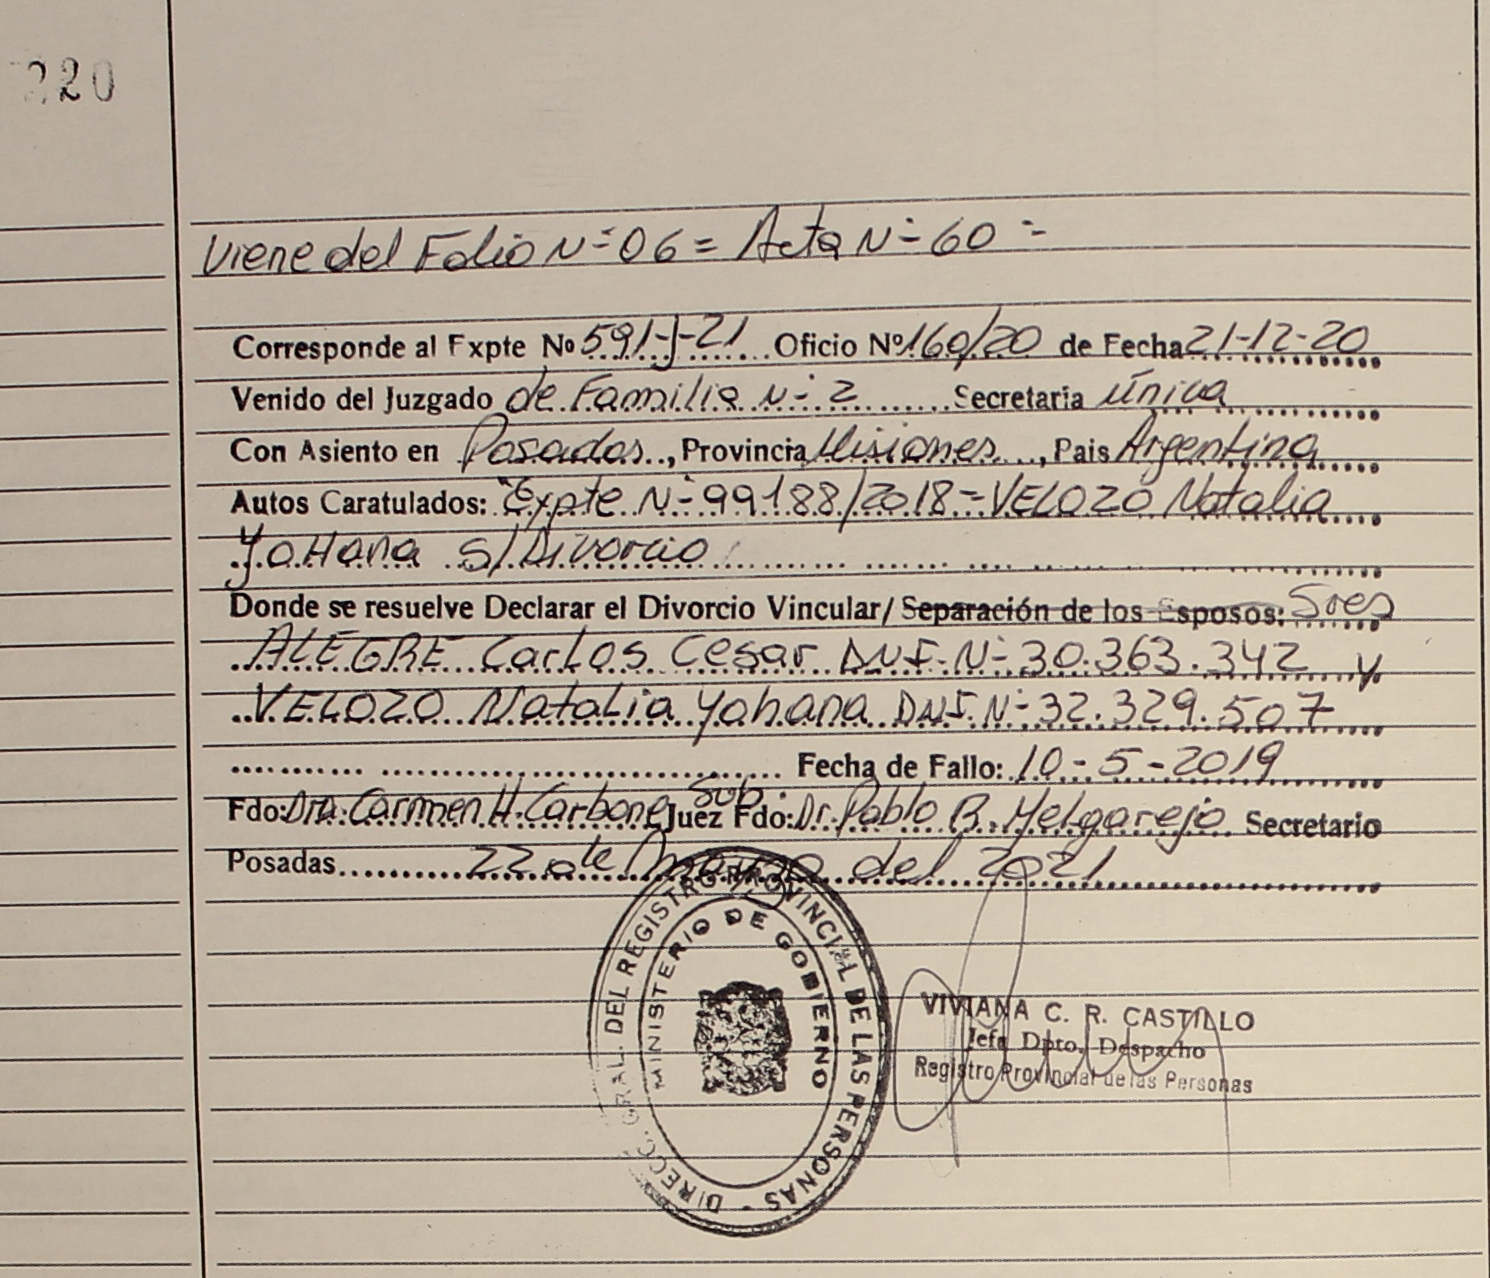 220
Viene del Folio N-06 = Acta N-60 =
Corresponde al Expte No 591-J-21 Oficio Nº 160/20 de Fecha 21-12-20
Venido del Juzgado de Familia N-2 Secretaria única
Con Asiento en Posadas, Provincia Misiones, Pais Argentina
Autos Caratulados: "Expte N-99188/2018=VELOZO Natalia
YoHana S/Divorcio
Donde se resuelve Declarar el Divorcio Vincular/ Separación de los Esposos: Sres
ALEGRE Carlos Cesar D.N.I. N-30.363.342 y
VELOZO Natalia Yohana DNI. N-32.329.507
Fecha de Fallo: 10-5-2019
Fdo: Dra. Carmen H. Carbone Juez Sub. Fdo: Dr. Pablo B. Melgarejo Secretario
Posadas 22 de mayo del 2021
DIRECC. GRAL. DEL REGISTRO PROVINCIAL DE LAS PERSONAS -
MINISTERIO DE GOBIERNO
VIVIANA C. R. CASTILLO
Jefa Dpto. Despacho
Registro Provincial de las Personas